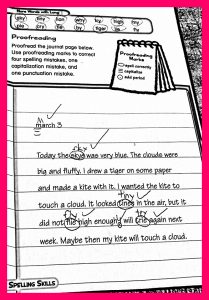 More Words with Long i
Proofreading
Proofread the journal page below.
Use proofreading marks to correct
four spelling mistakes, one
capitalization mistake, and
one punctuation mistake.
Proofreading
Marks
spell correctly
capitalize
add period
march 3
sky
Today the skye was very blue. The clouds were
big and fluffy. I drew a tiger on some paper
and made a kite with it. I wanted the kite to
tiny
touch a cloud. It looked tines in the air, but it
fly try
did not flie high enough I will trie again next
week. Maybe then my kite will touch a cloud.
SPELLING SKILLS